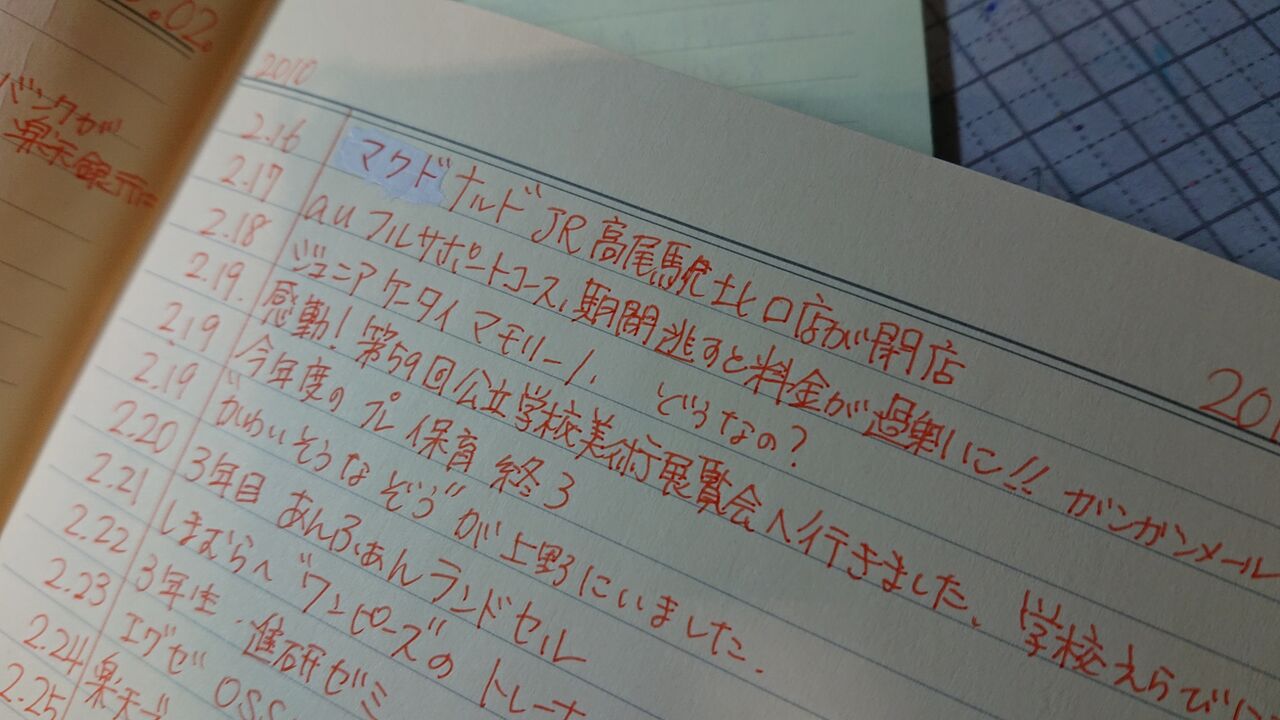 .02.
バンクが
楽天銀行に
2010
201
2.16 マクドナルド JR高尾駅北口店が閉店
2.17 auフルサポートコース、期間逃すと料金が過剰に!! ガンガンメール
2.18 ジュニアケータイ マモリーノ、どうなの?
2.19. 感動! 第59回公立学校美術展覧会へ行きました、学校えらびに
2.19 今年度のプレ保育 終了
2.19 かわいそうなぞうが上野にいました.
2.20 3年目 あんふぁんランドセル
2.21 しまむらへワンピースのトレーナ
2.22 3年生.進研ゼミ
2.23 エグゼ OSS
2.24 楽天ブ
2.25